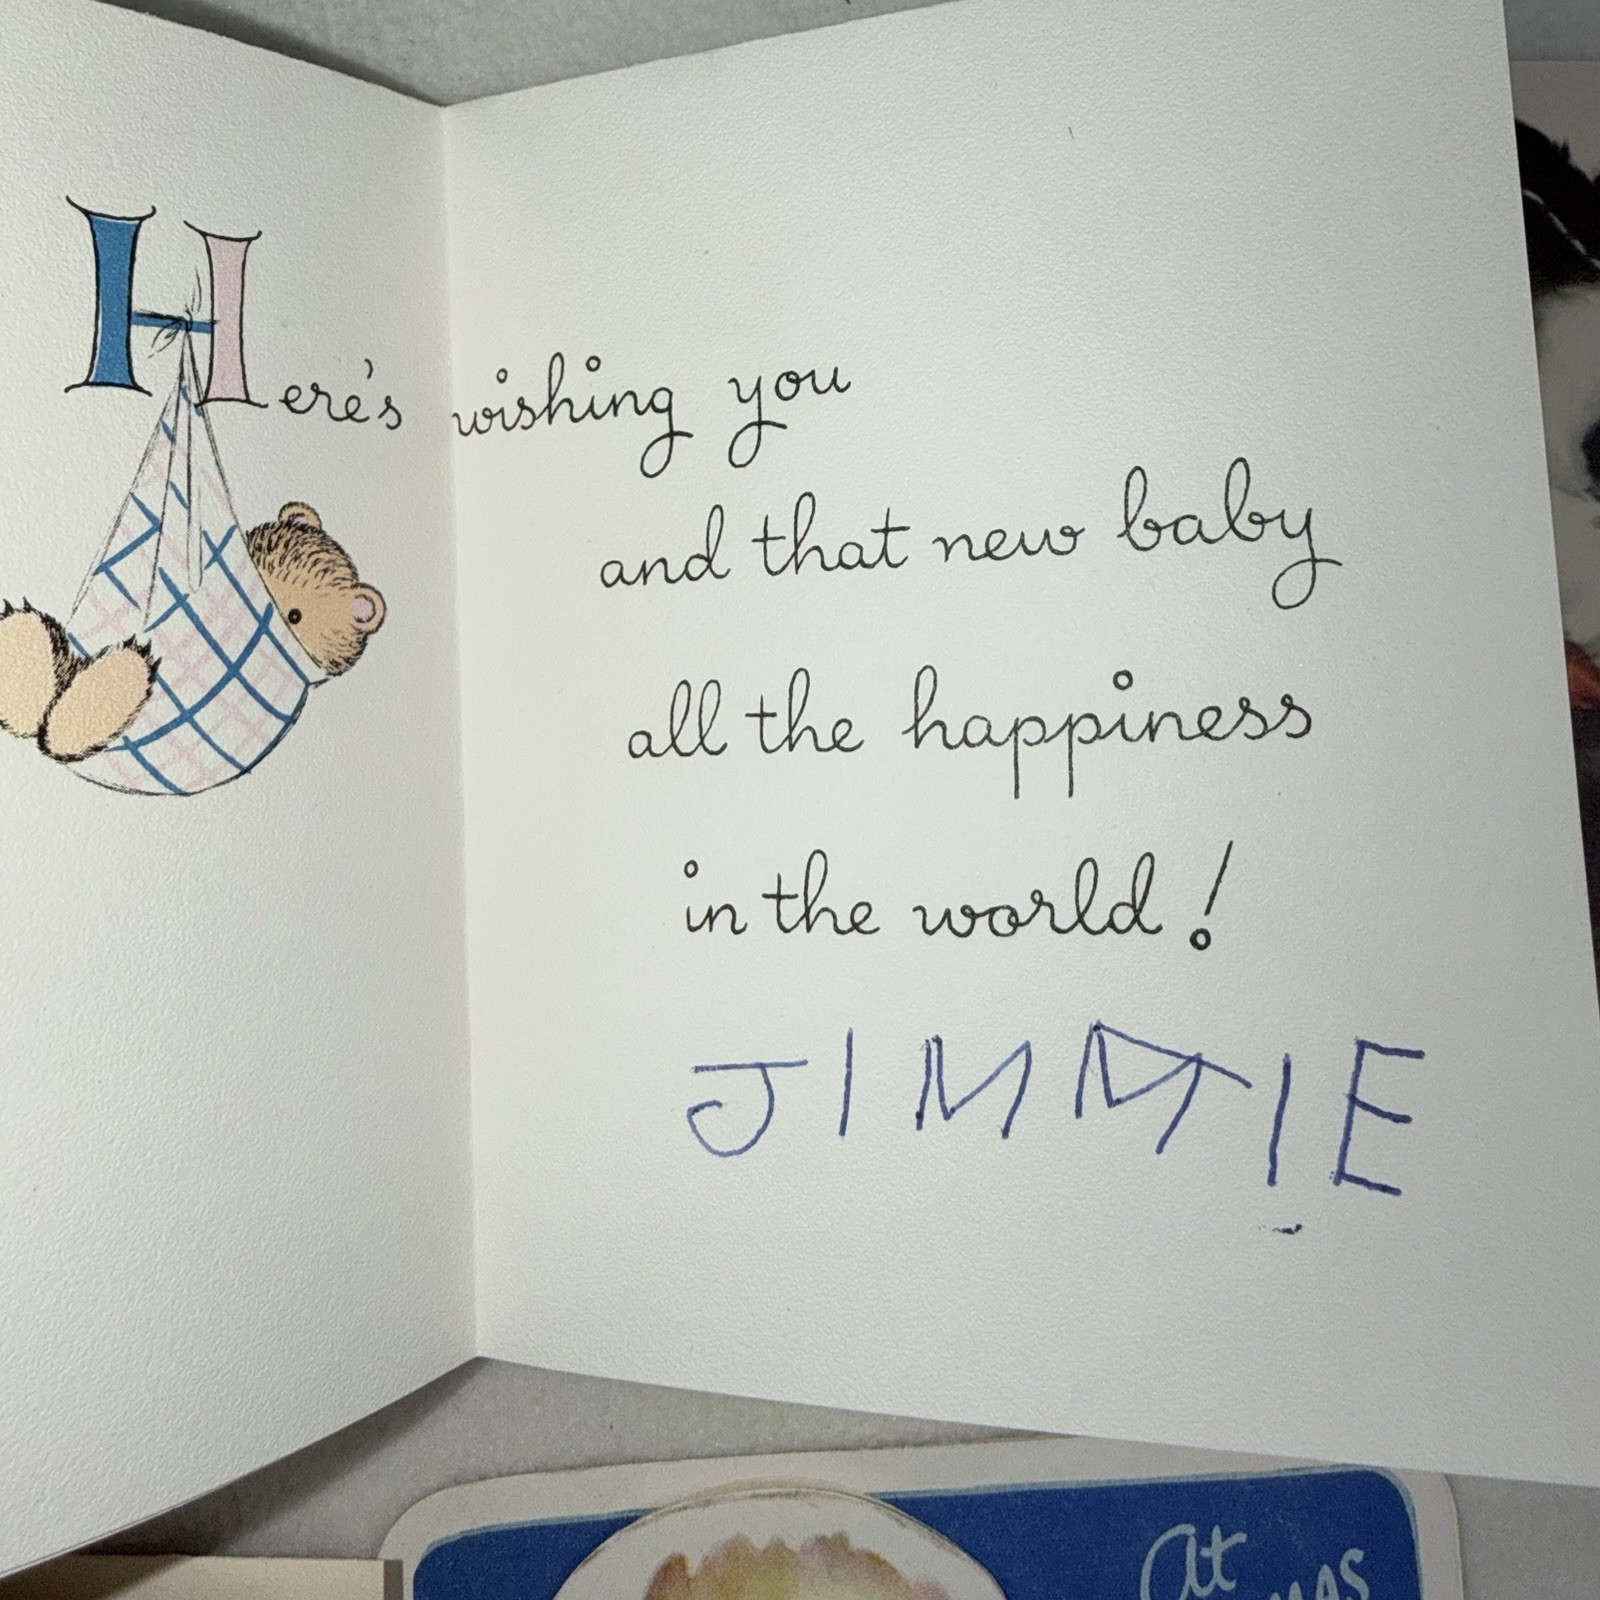 Here's wishing you
and that new baby
all the happiness
in the world!
JIMMIE
At